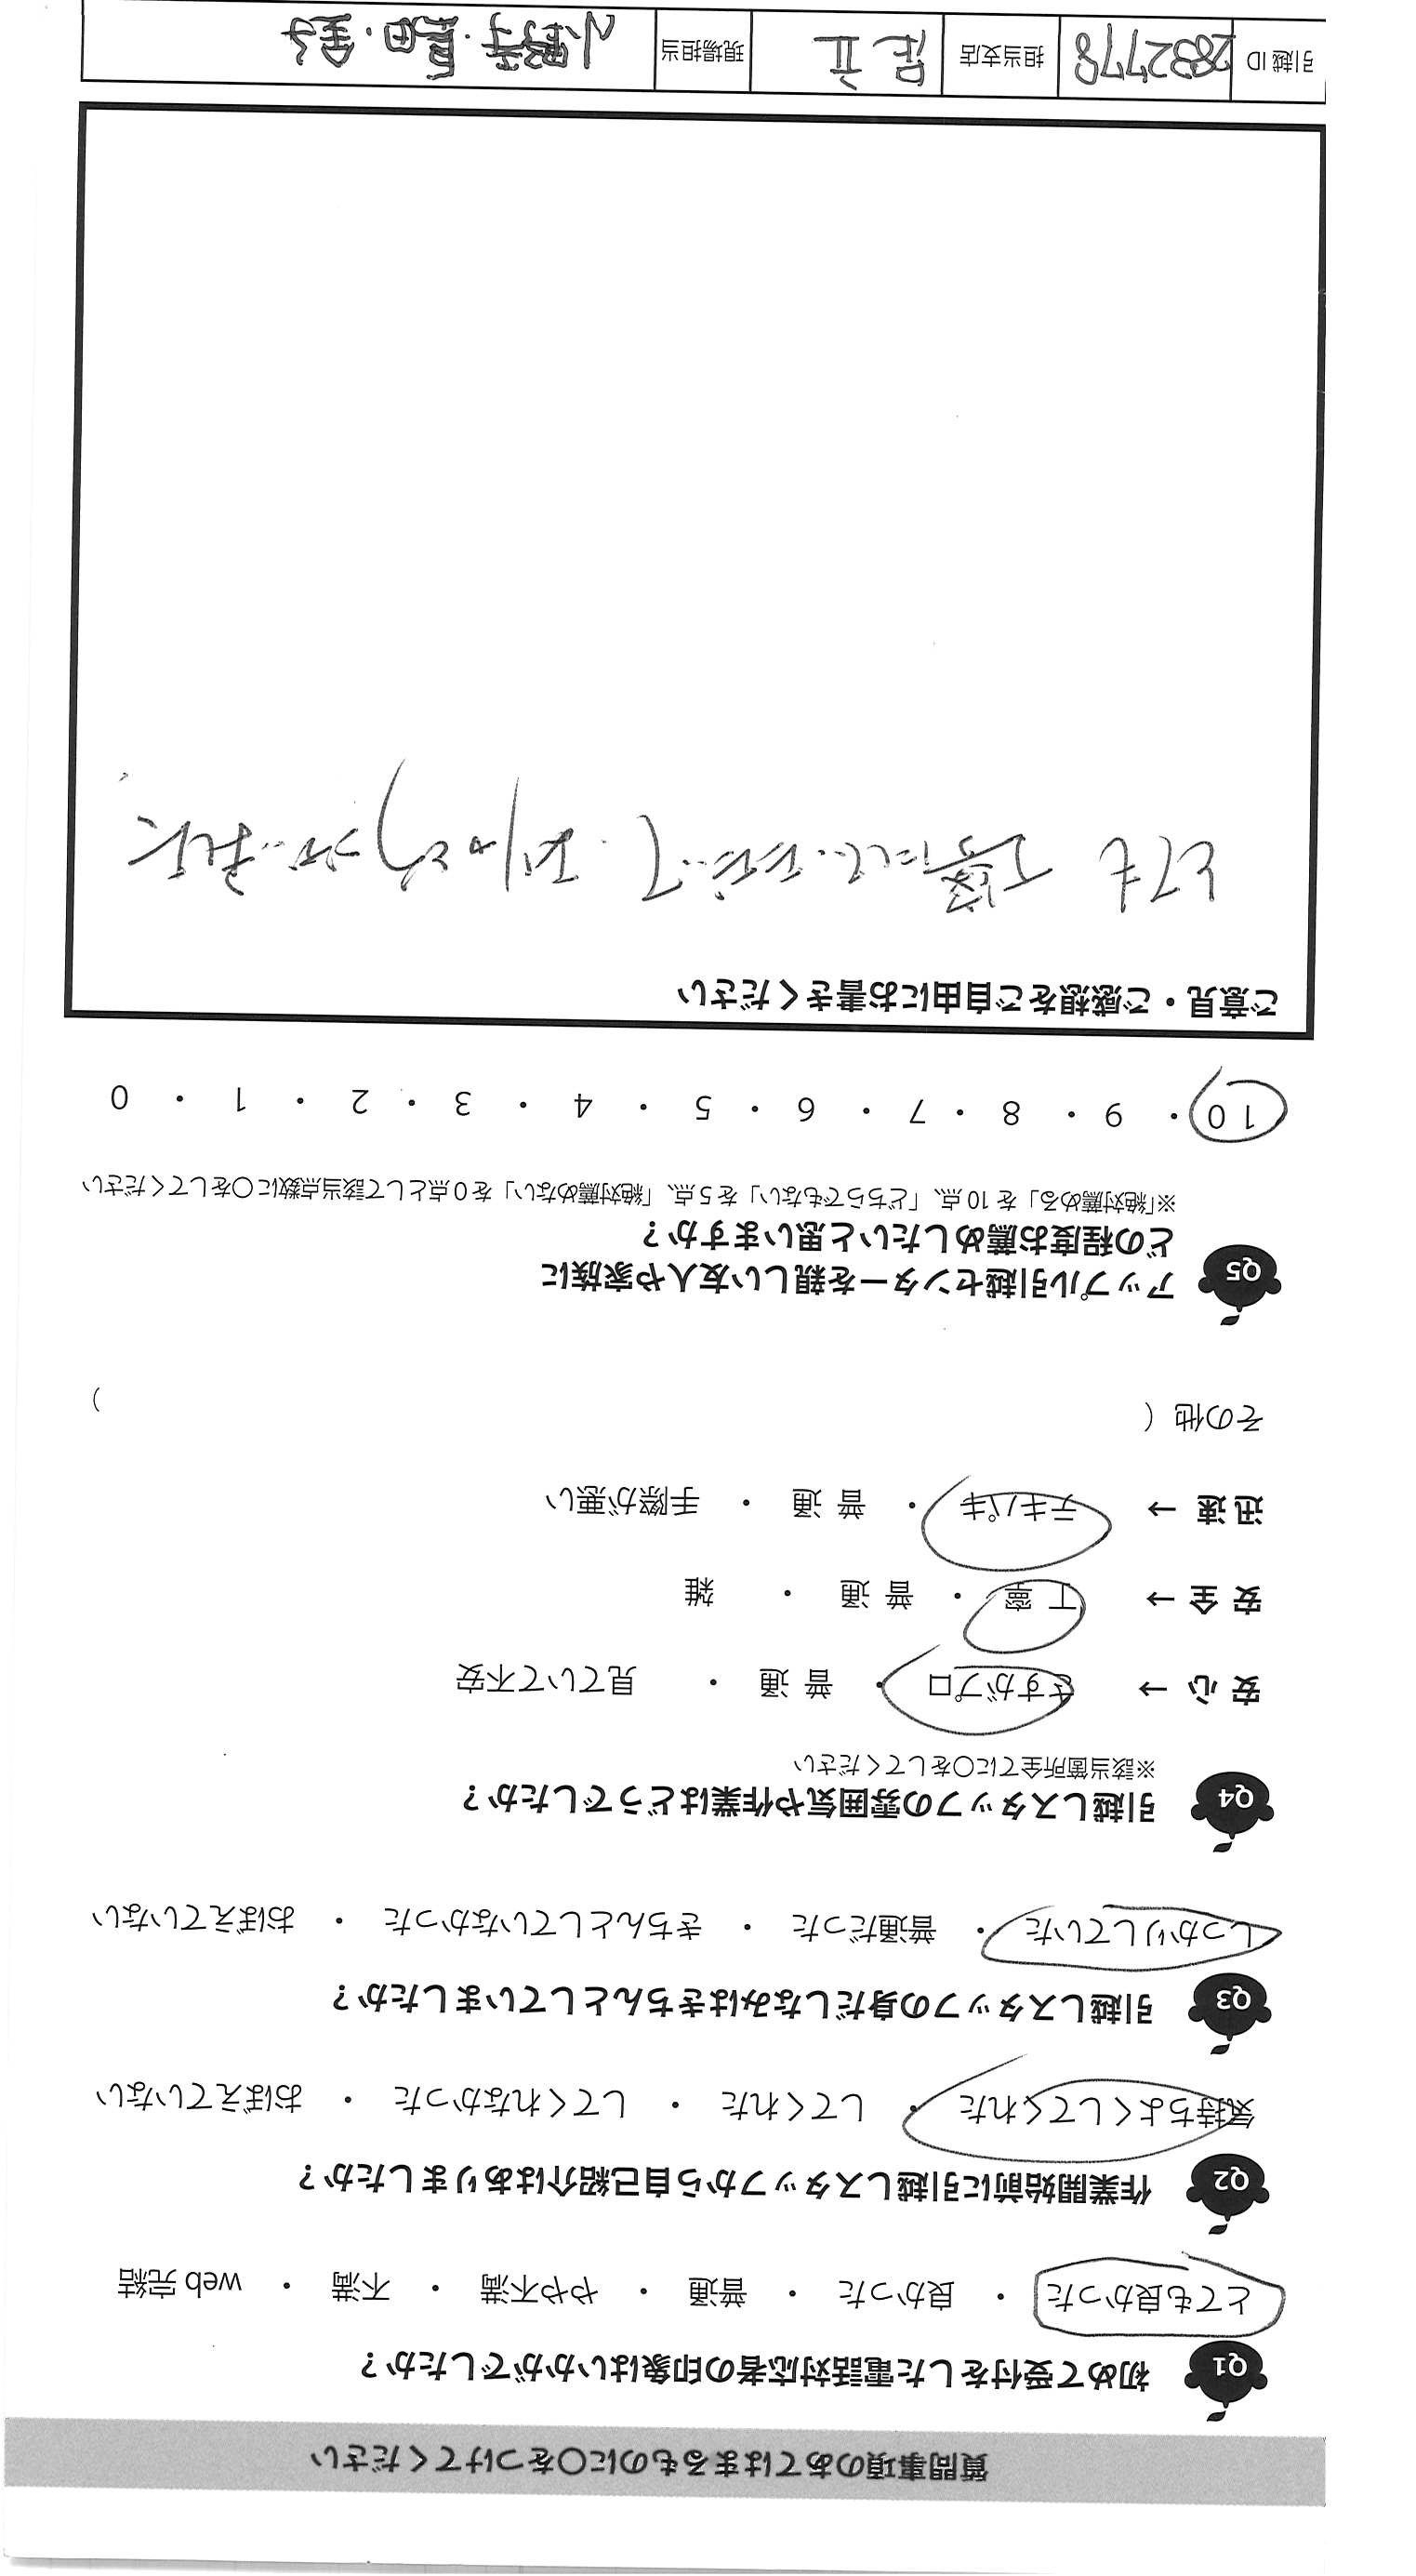 質問事項のあてはまるものに〇をつけてください
Q1 初めて受付をした電話対応者の印象はいかがでしたか？
とても良かった ・ 良かった ・ 普通 ・ やや不満 ・ 不満 ・ web 完結
Q2 作業開始前に引越しスタッフから自己紹介はありましたか？
気持ちよくしてくれた ・ してくれた ・ してくれなかった ・ おぼえていない
Q3 引越しスタッフの身だしなみはきちんとしていましたか？
しっかりしていた ・ 普通だった ・ きちんとしていなかった ・ おぼえていない
Q4 引越しスタッフの雰囲気や作業はどうでしたか？
※該当箇所全てに〇をしてください
安 心 → さすがプロ ・ 普 通 ・ 見ていて不安
安 全 → 丁 寧 ・ 普 通 ・ 雑
迅 速 → テキパキ ・ 普 通 ・ 手際が悪い
その他（ ）
Q5 アップル引越センターを親しい友人や家族に
どの程度お薦めしたいと思いますか？
※「絶対薦める」を 10 点、「どちらでもない」を 5 点、「絶対薦めない」を 0 点として該当点数に〇をしてください
10 ・ 9 ・ 8 ・ 7 ・ 6 ・ 5 ・ 4 ・ 3 ・ 2 ・ 1 ・ 0
ご意見・ご感想をご自由にお書きください
とても丁寧にして下さって ありがとうございました
引越 ID 2832778 担当支店 足立 現場担当 小野寺・ 田・金子